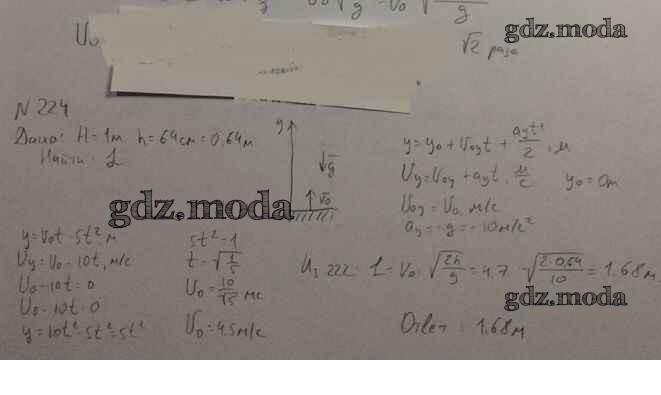 gdz.moda
U₀
√2 раза
N 224
Дано: H=1м h=64см=0,64м
Найти: L
y
g
v₀
y=y₀+V₀yt+ayt²/2, м
Vy=V₀y+ayt, м/с y₀=0м
V₀y=V₀, м/с
ay=-g=-10м/с²
gdz.moda
y=V₀t-5t², м
Vy=V₀-10t, м/с
V₀-10t=0
V₀=10t=0
y=10t²-5t²=5t²
5t²=1
t=√1/5
V₀=10/√5 м/с
V₀=4,5м/с
Из 222: L=V₀·√2h/g=4,7·√2·0,64/10=1.68м
gdz.moda
Ответ: 1.68м